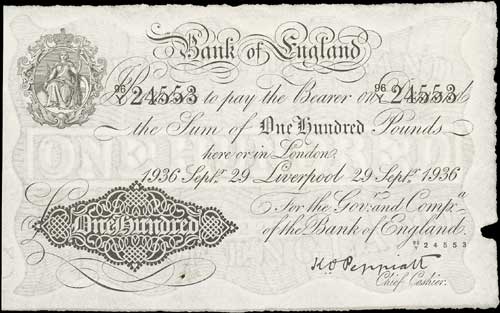 Bank of England
I Promise to pay the Bearer on Demand
96/Y 24553 96/Y 24553
the Sum of One Hundred Pounds
here or in London.
1936 Septr. 29 Liverpool 29 Septr. 1936
For the Govr. and Compa.
of the Bank of England.
96/Y 24553
One Hundred
K O Peppiatt
Chief Cashier.